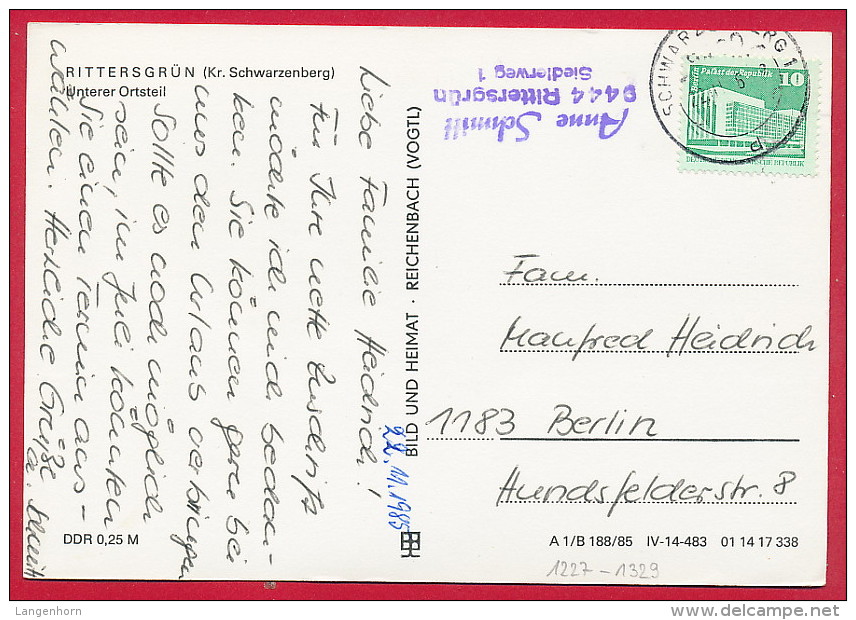 RITTERSGRÜN (Kr. Schwarzenberg)
Unterer Ortsteil
Liebe Familie Heidrich!
Für Ihre nette Zuschrift
möchte ich mich bedan-
ken. Sie können gerne bei
uns den Urlaub verbringen
Sollte es noch möglich
sein, im Juli könnten
Sie einen Termin aus-
wählen. Herzliche Grüße
A. Schmitt
DDR 0,25 M
BILD UND HEIMAT · REICHENBACH (VOGTL)
22.11.1985
Anne Schmitt
9444 Rittersgrün
Siedlerweg 1
SCHWARZENBERG 1
Berlin Palast der Republik 10
DEUTSCHE DEMOKRATISCHE REPUBLIK
Fam.
Manfred Heidrich
1183 Berlin
Hundsfelderstr. 8
A 1/B 188/85 IV-14-483 01 14 17 338
1227-1329
Langenhorn
www.delcampe.net